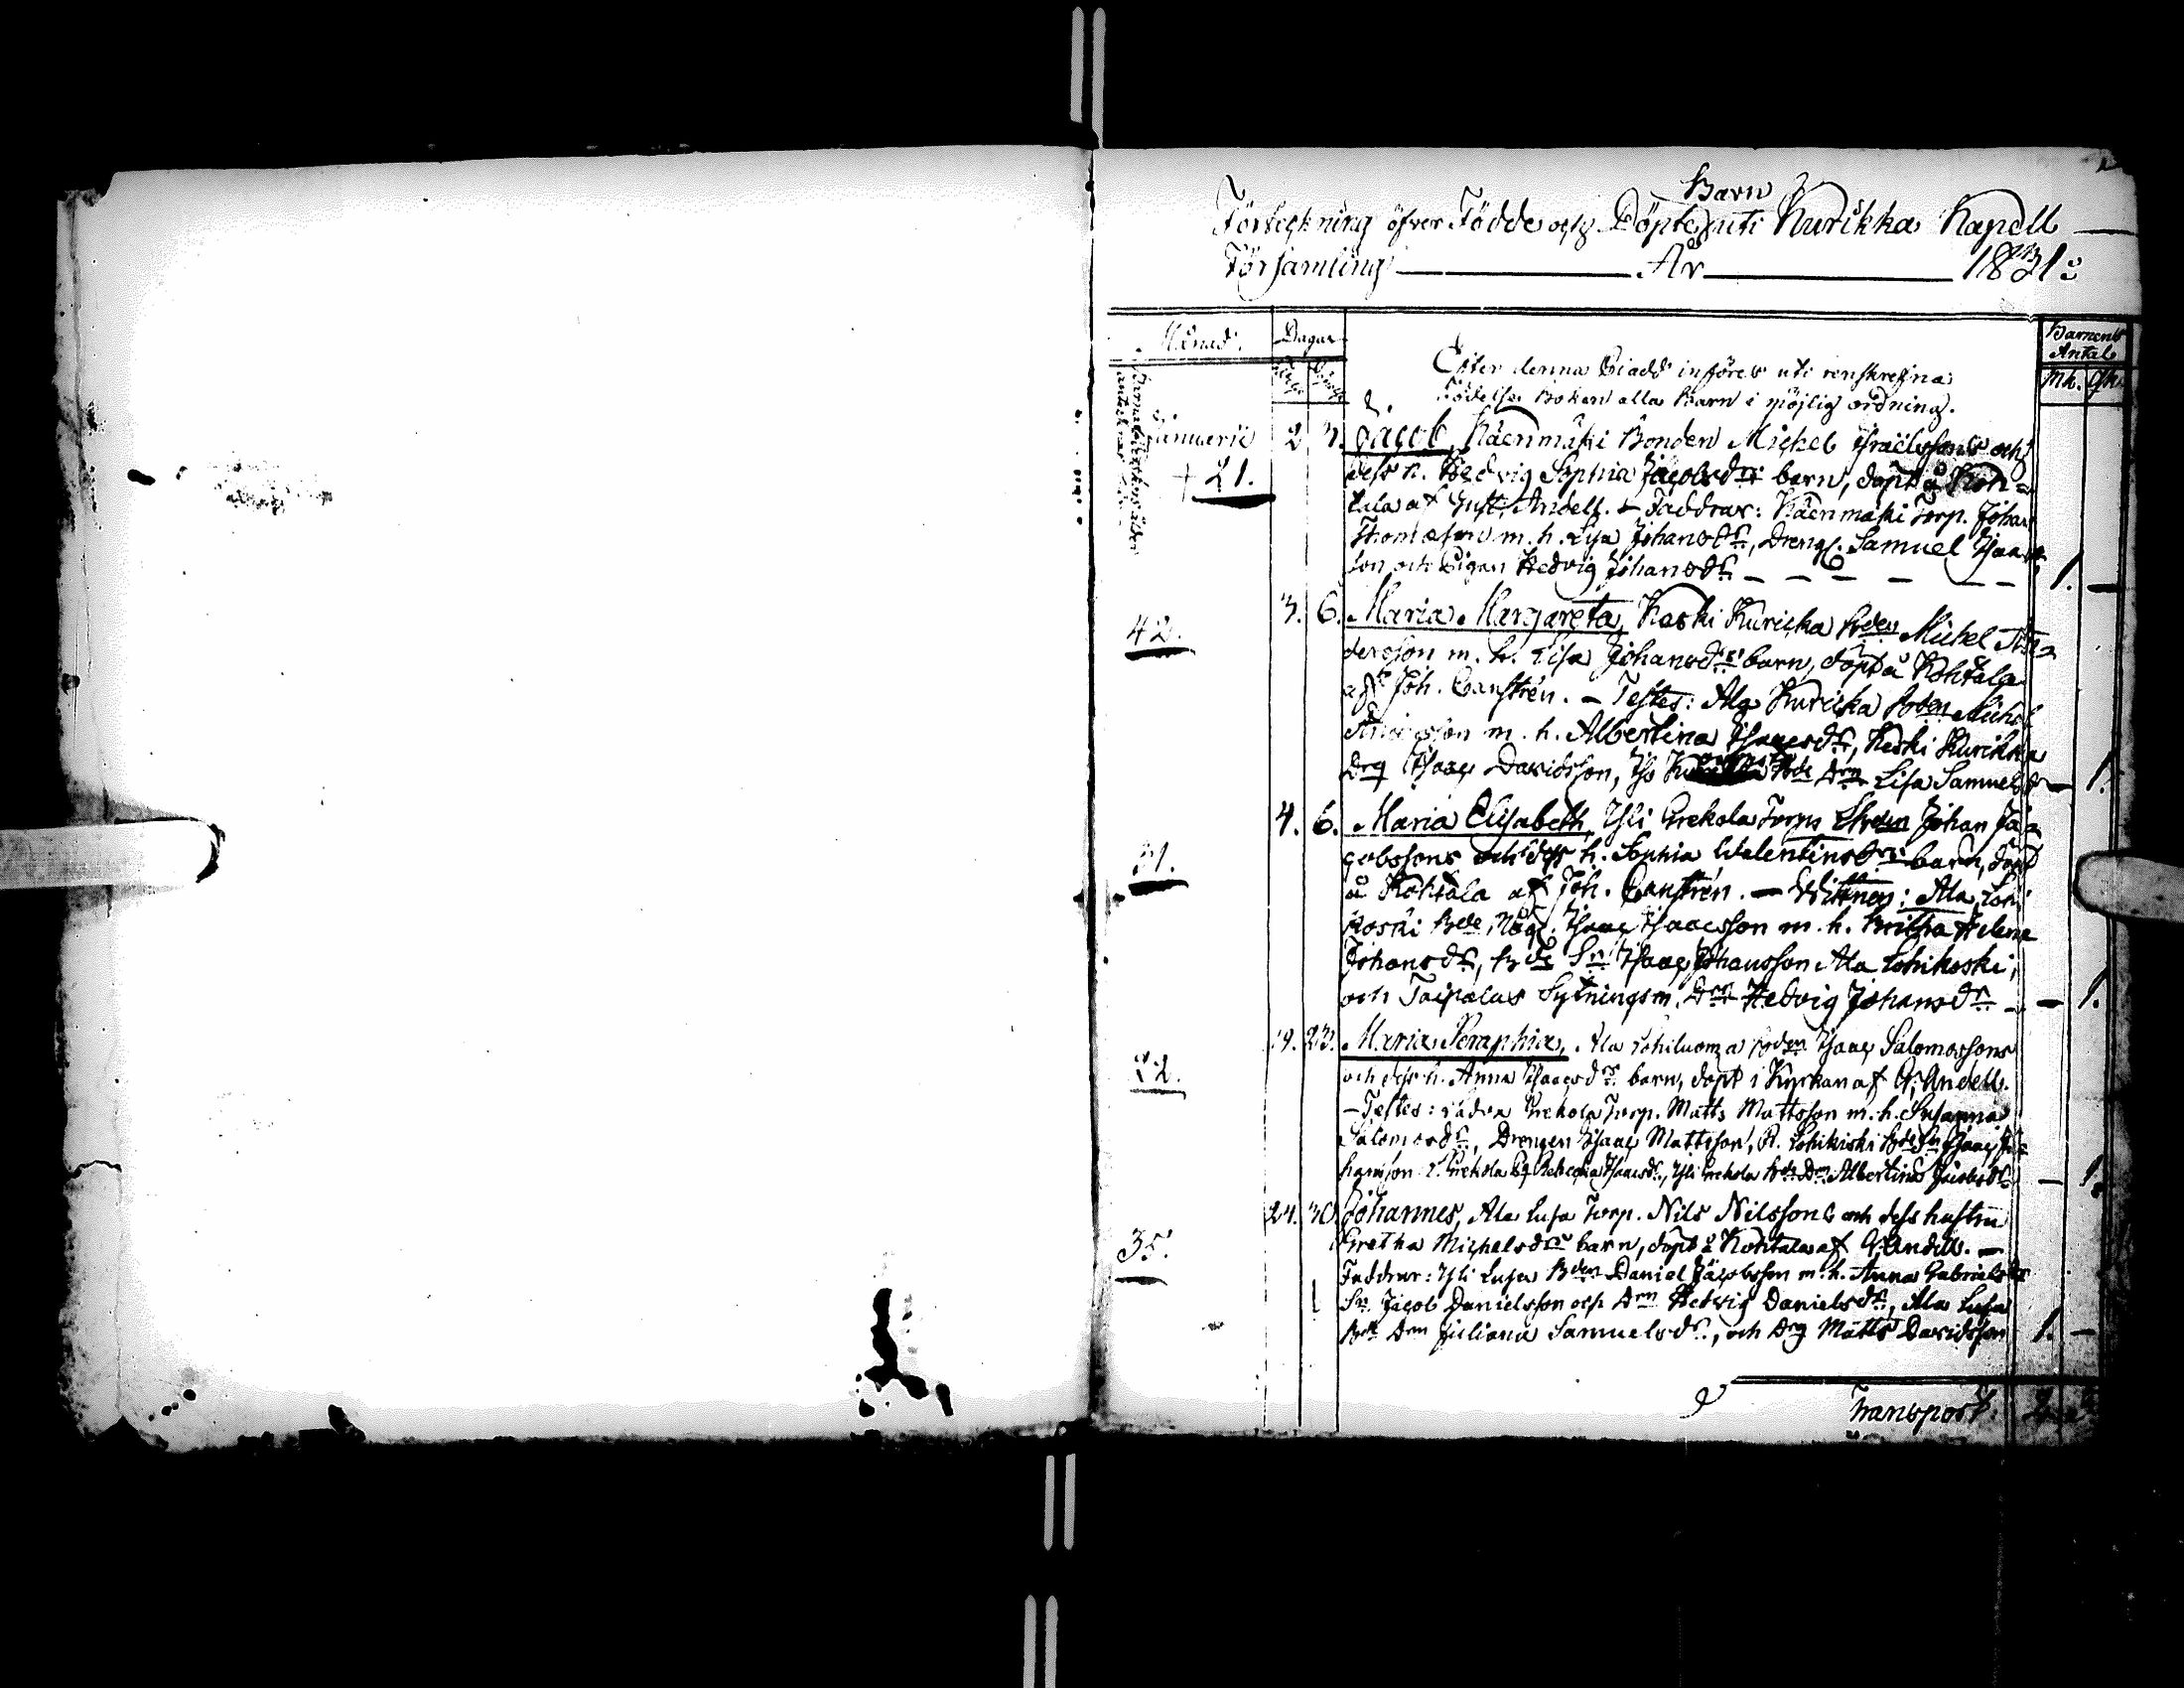 Barn
Förteckning öfver Födde och Döpte uti Kurikka Kapell
Församling År 1831:
Månad. Dagar Barnens Antal
Mk. Qk.
Efter denna Criadd införes uti renskrefna
Födelse Boken alla Barn i möjlig ordning.
Januarii 2 3. Jacob, Käenmäki Bonden Michel Israelssons och
+ 21. dess h. Hedvig Sophia Jacobsdrs barn, döpt å Koh=
tala af Gust. Andell. – Faddrar: Käenmäki Torp. Johan
Thomasson m. h. Lisa Johansdr, Drengs. Samuel Isaacs
son och Pigan Hedvig Johansdr 1. –
3. 6. Maria Margareta, Keski Kuricka Bden Michel An=
42. dersson m. h. Lisa Johansdrs barn, döpt å Kohtala
af Joh. Canstrén. – Testes: Ala Kuricka Bden Michel
m. h. Albertina Isaacsdr, Keski Kurikka
Drg Isaac Davidsson, Bde Drn Lisa Samuelsdr – 1.
4. 6. Maria Elisabeth, Yli Grekola Torps Johan Ja=
31. cobssons och dess h. Sophia Walentinsdrs barn, döpt
å Kohtala af Joh. Canstrén. – Wittnen: Ala Lohi
koski Bde Måg. Isaac Isaacsson m. h. Britha Helena
Johansdr, Bde Sn Isaac Johansson Ala Lohikoski,
och Taipalus Sytningsm. Drn Hedvig Johansdr – 1.
19. 23. Maria Seraphia, Ala Lohiluoma Bden Isaac Salomossons
22. och dess h. Anna Isaacsdrs barn, döpt i Kyrkan af G. Andell.
– Testes: Grekola Torp. Matts Mattsson m. h. Susanna
Salomosdr, Drengen Isaac Mattsson, A. Lohikoski Bde Sn Isaac Jo=
hansson Grekola Pg Rebecka Isaacsdr, Yli Grekola Bde Drn Albertina Jacobsdr – 1.
24. 30. Johannes, Ala Lusa Torp. Nils Nilssons och dess hustru
35. Gretha Michelsdrs barn, döpt å Kohtala af G. Andell. –
Faddrar: Yli Lusa Bden Daniel Jacobsson m. h. Anna Gabrielsdr
Sn Jacob Danielsson och Drn Hedvig Danielsdr, Ala Lusa
Bde Drn Juliana Samuelsdr, och Drg Matts Davidsson 1. –
Transport: